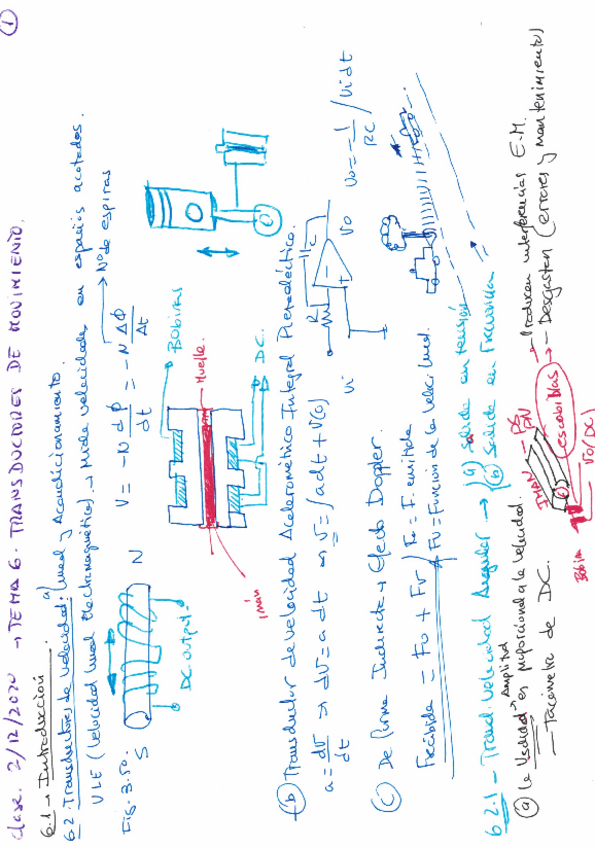 ①
Clase 2/12/2020 → TEMA 6 - TRANSDUCTORES DE MOVIMIENTO.
6.1 → Introducción
6.2 Transductores de Velocidad: lineal y Acondicionamiento.
VLE (Velocidad lineal Electromagnética). → Mide velocidades en espacios acotados.
Fig. 3.50.
V = -N dϕ/dt = -N Δϕ/Δt
Nº de espiras
S
N
DC output
Bobinas
Muelle.
DC.
imán
(b) Transductor de velocidad Acelerométrico Integral Piezoeléctrico.
a = dv/dt → dV = a dt → v = ∫a dt + V(0)
Vi
R
C
Vo
Vo = -1/RC ∫Vi dt
(c) De forma Indirecta → Efecto Doppler.
Frecibida = Fo + Fv
Fo = F. emitida
Fv = Función de la veloc. lineal.
6.2.1 - Transd. Velocidad Angular →
(a) Salida en tensión
(b) Salida en frecuencia
(a) la Amplitud es proporcional a la velocidad.
- Tacómetro de DC.
IMAN
Bobina
Vo (DC)
escobillas
→ Producen interferencias E.M.
→ Desgastan (errores y mantenimiento)